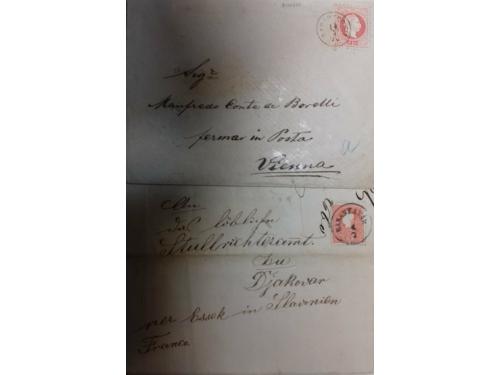 Sigr
Manfredo Conte de Borelli
fermo in Posta
Vienna
An
das löbliche
Stuhlrichteramt
zu
Djakovar
per Essek in Slavonien
Franco